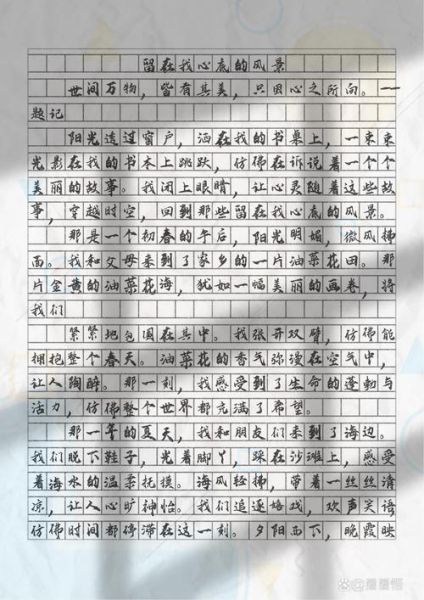 留在我心底的风景
世间万物，皆有其美，只因心之所向。——
题记
阳光透过窗户，洒在我的书桌上，一束束
光影在我的书本上跳跃，仿佛在诉说着一个个
美丽的故事。我闭上眼睛，让心灵随着这些故
事，穿越时空，回到那些留在我心底的风景。
那是一个初春的午后，阳光明媚，微风拂
面。我和父母来到了家乡的一片油菜花田。那
片金黄的油菜花海，犹如一幅美丽的画卷，将
我们
紧紧地包围在其中。我张开双臂，仿佛能
拥抱整个春天。油菜花的香气弥漫在空气中，
让人陶醉。那一刻，我感受到了生命的蓬勃与
活力，仿佛整个世界都充满了希望。
那一年的夏天，我和朋友们来到了海边。
我们脱下鞋子，光着脚丫，踩在沙滩上，感受
着海水的温柔托摸。海风轻拂，带着一丝丝清
凉，让人心旷神怡。我们追逐嬉戏，欢声笑语
仿佛时间都停滞在这一刻。夕阳西下，晚霞映